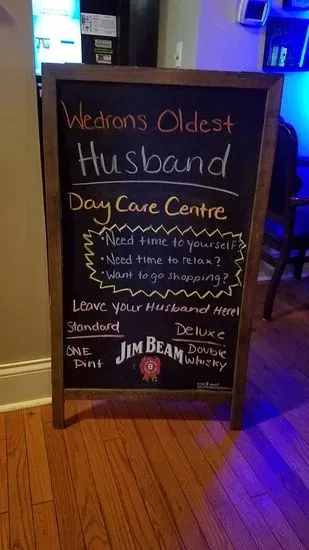 Wedrons Oldest
Husband
Day Care Centre
• Need time to yourself?
• Need time to relax?
• Want to go shopping?
Leave your Husband Here!
Standard Deluxe
ONE Pint
JIM BEAM
B
Double Whisky